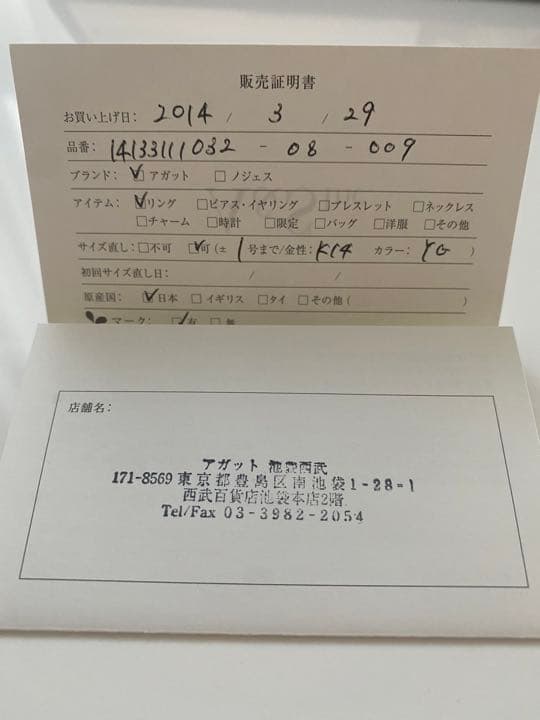 販売証明書
お買い上げ日: 2014 / 3 / 29
品番: 14133111032 - 08 - 009
ブランド: ☑アガット □ノジェス
アイテム: ☑リング □ピアス・イヤリング □ブレスレット □ネックレス
□チャーム □時計 □限定 □バッグ □洋服 □その他
サイズ直し: □不可 ☑可(± 1号まち/金性: K14 カラー: YG )
初回サイズ直し日: / /
原産国: ☑日本 □イギリス □タイ □その他( )
マーク: ☑有 □無
店舗名:
アガット 池袋西武
171-8569 東京都豊島区南池袋1-28-1
西武百貨店池袋本店2階
Tel/Fax 03-3982-2054